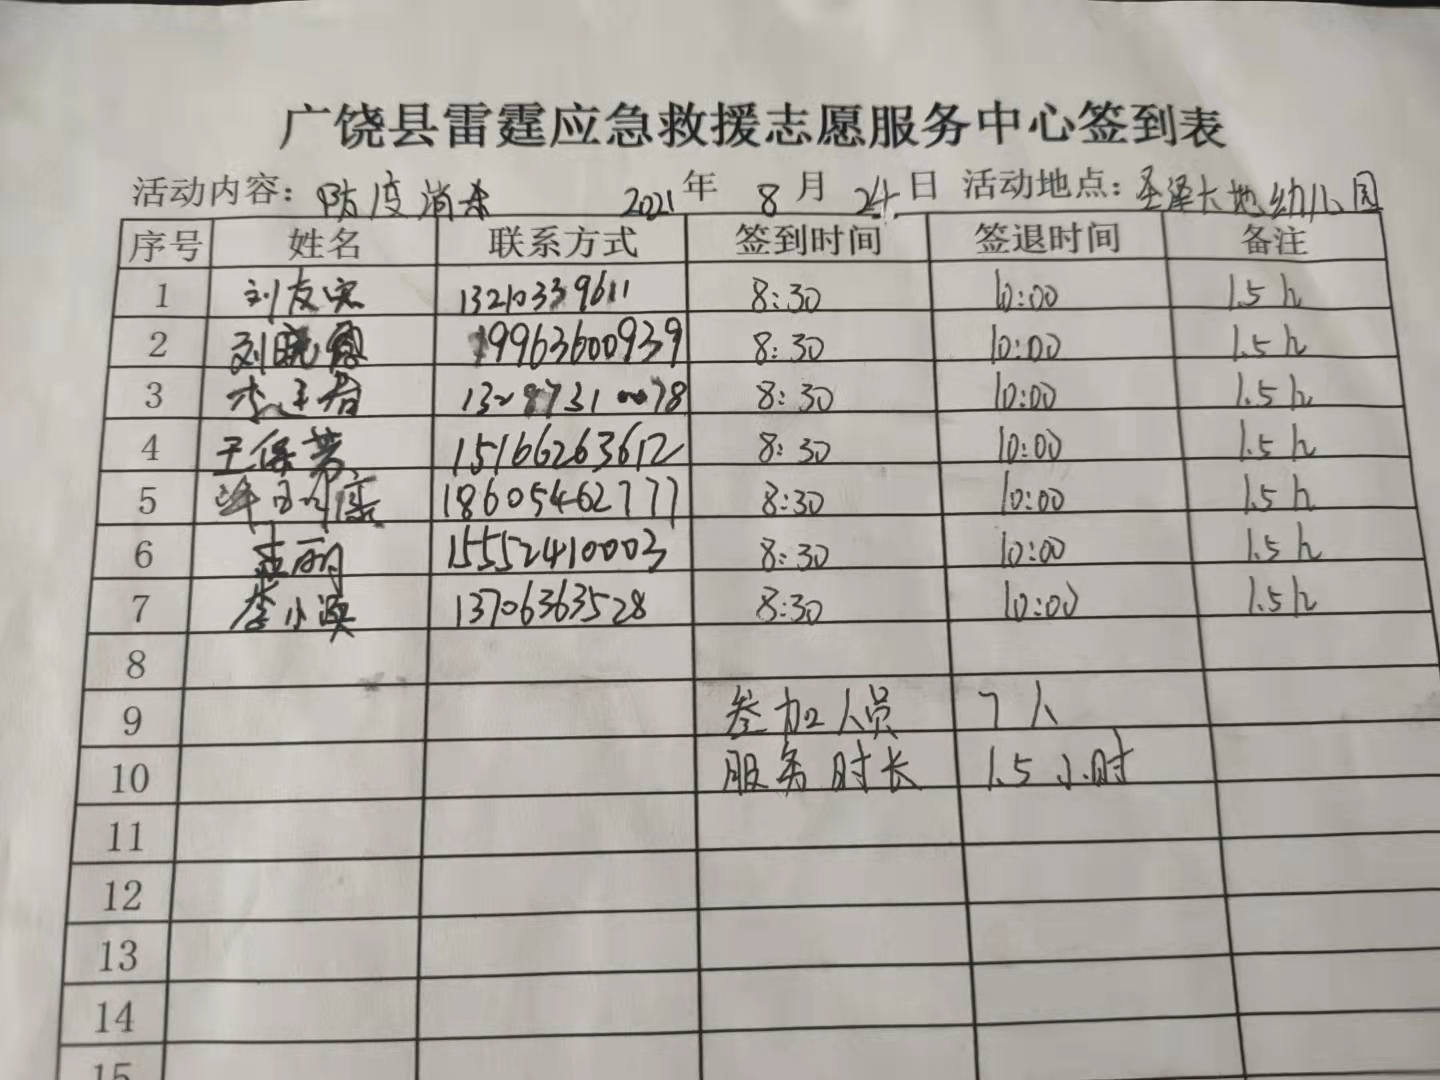 广饶县雷霆应急救援志愿服务中心签到表
活动内容：防疫消杀 2021年 8月 24日 活动地点：圣泽大地幼儿园
序号 姓名 联系方式 签到时间 签退时间 备注
1 刘友宏 13210339611 8:30 10:00 1.5h
2 刘晓 19963600939 8:30 10:00 1.5h
3 8:30 10:00 1.5h
4 王保芳 15166263612 8:30 10:00 1.5h
5 18605462777 8:30 10:00 1.5h
6 丽 15552410003 8:30 10:00 1.5h
7 李小 13706363528 8:30 10:00 1.5h
8
9 参加人员 7人
10 服务时长 1.5小时
11
12
13
14
15